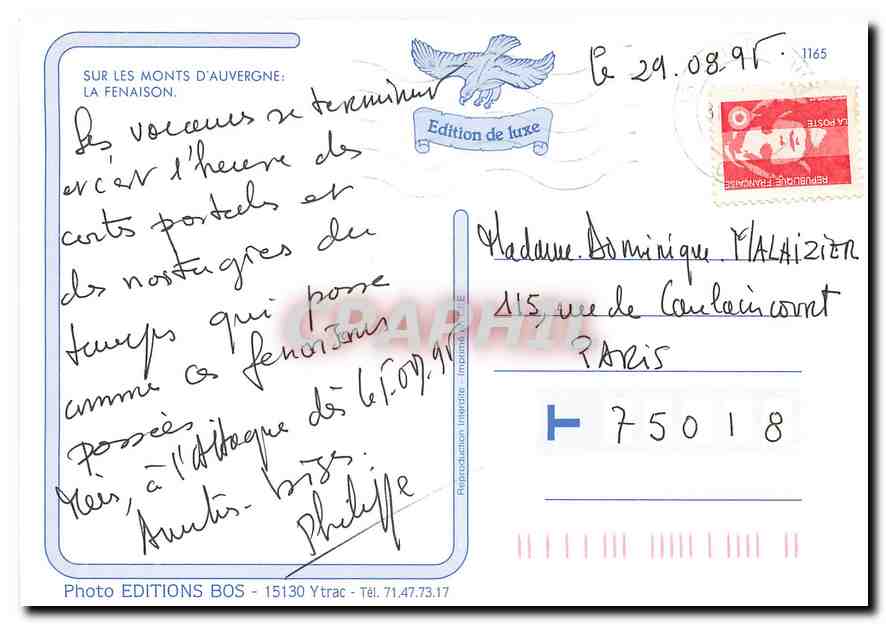 SUR LES MONTS D'AUVERGNE:
LA FENAISON.
Edition de luxe
1165
le 29.08.95.
LA POSTE
REPUBLIQUE FRANÇAISE
Les vacances se terminent
et c'est l'heure des
cartes postales et
des nostalgies du
temps qui passe
comme ces fenaisons
passées.
Mais, à l'Attaque dès le 5.09.95
Amitiés - bises.
Philippe
Madame Dominique MALAIZIER
115, rue de Caulaincourt
PARIS
T 75018
Reproduction Interdite - Imprimé
CPAPHIL
Photo EDITIONS BOS - 15130 Ytrac - Tél. 71.47.73.17